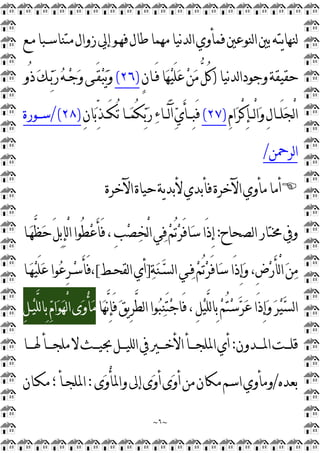 لنهايته بين النوعين فمأوي الدنيا مهما طال فهو إلى زوال متناسبا مع
حقيقة وجود الدنيا {كُلُّ مَنْ عَلَيْهَا فَانٍ (٢٦) وَيَبْقَى وَجْهُ رَبِّكَ ذُو
الْجَلَالِ وَالْإِكْرَامِ (٢٧) فَبِأَيِّ آلَاءِ رَبِّكُمَا تُكَذِّبَانِ (٢٨)/سورة
الرحمن/
☜أما مأوي الآخرة فأبدي لأبدية حياة الآخرة
وفي مختار الصحاح: إِذَا سَافَرْتُمْ فِي الْخِصْبِ، فَأَعْطُوا الْإِبِلَ حَظَّهَا
مِنَ الْأَرْضِ، وَإِذَا سَافَرْتُمْ فِي السَّنَةِ[أي القحط]، فَأَسْرِعُوا عَلَيْهَا
السَّيْرَ وَإِذَا عَرَّسْتُمْ بِاللَّيْلِ، فَاجْتَنِبُوا الطَّرِيقَ فَإِنَّهَا مَأْوَى الْهَوَامِّ بِاللَّيْلِ
قلت المدون: أي الملجأ الأخير في الليل بحيث لا ملجأ لها
بعده/ومأوي اسم مكان من أوَى أوَى إلى والمأْوَى: الملجأ؛ مكان
~٦~